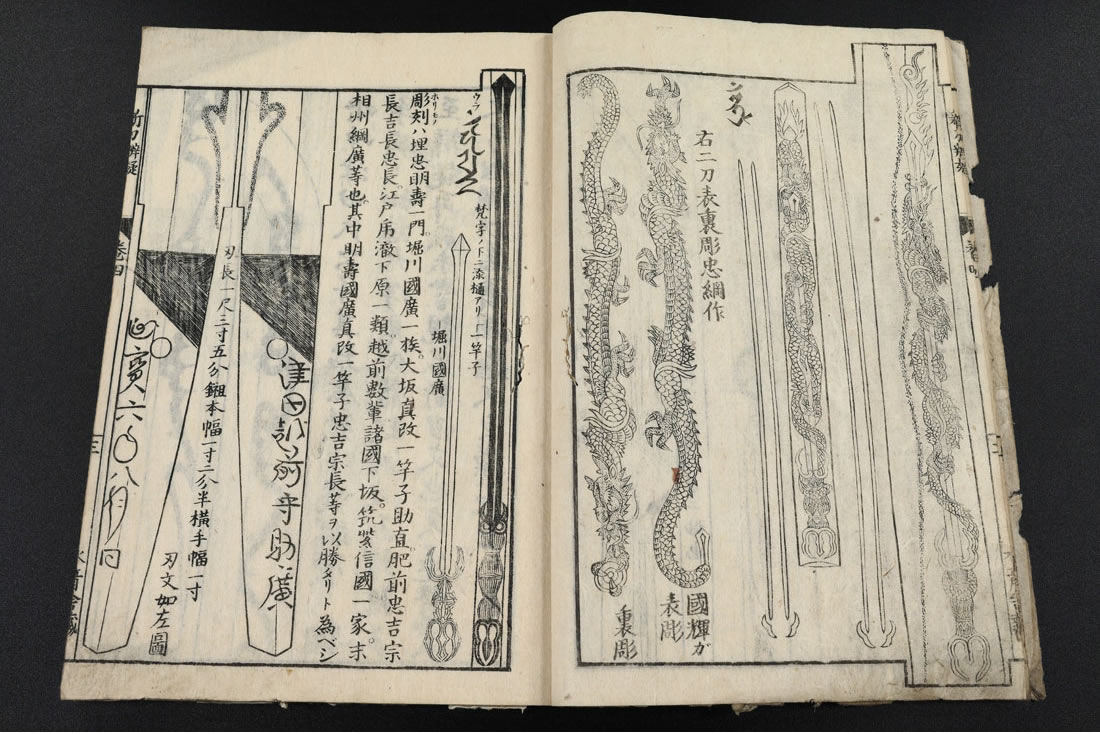 右二刀表裏彫忠綱作
國輝ガ
表彫
裏彫
梵字ノ下ニ添樋アリ
一竿子
堀川國廣
彫刻ハ埋忠明壽一門。堀川國廣一族。大坂真改一竿子助直。肥前忠吉宗
長吉長忠長。江戸乕澈下原一類。越前數輩諸國下坂。筑紫信國一家。末
相州綱廣等也。其中明壽國廣真改一竿子忠吉宗長等ヲ以勝タリト為ベシ
津田越前守助廣
刃長一尺三寸五分鎺本幅一寸二分半横手幅一寸
刃文如左圖
延寶六年八月日
新刀辨疑
卷四
三